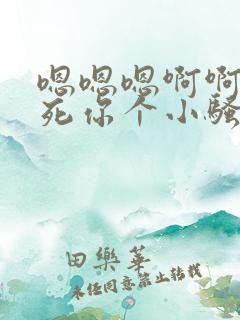 嗯嗯嗯啊啊
死你个小骚
田樂華
未经同意禁止转载